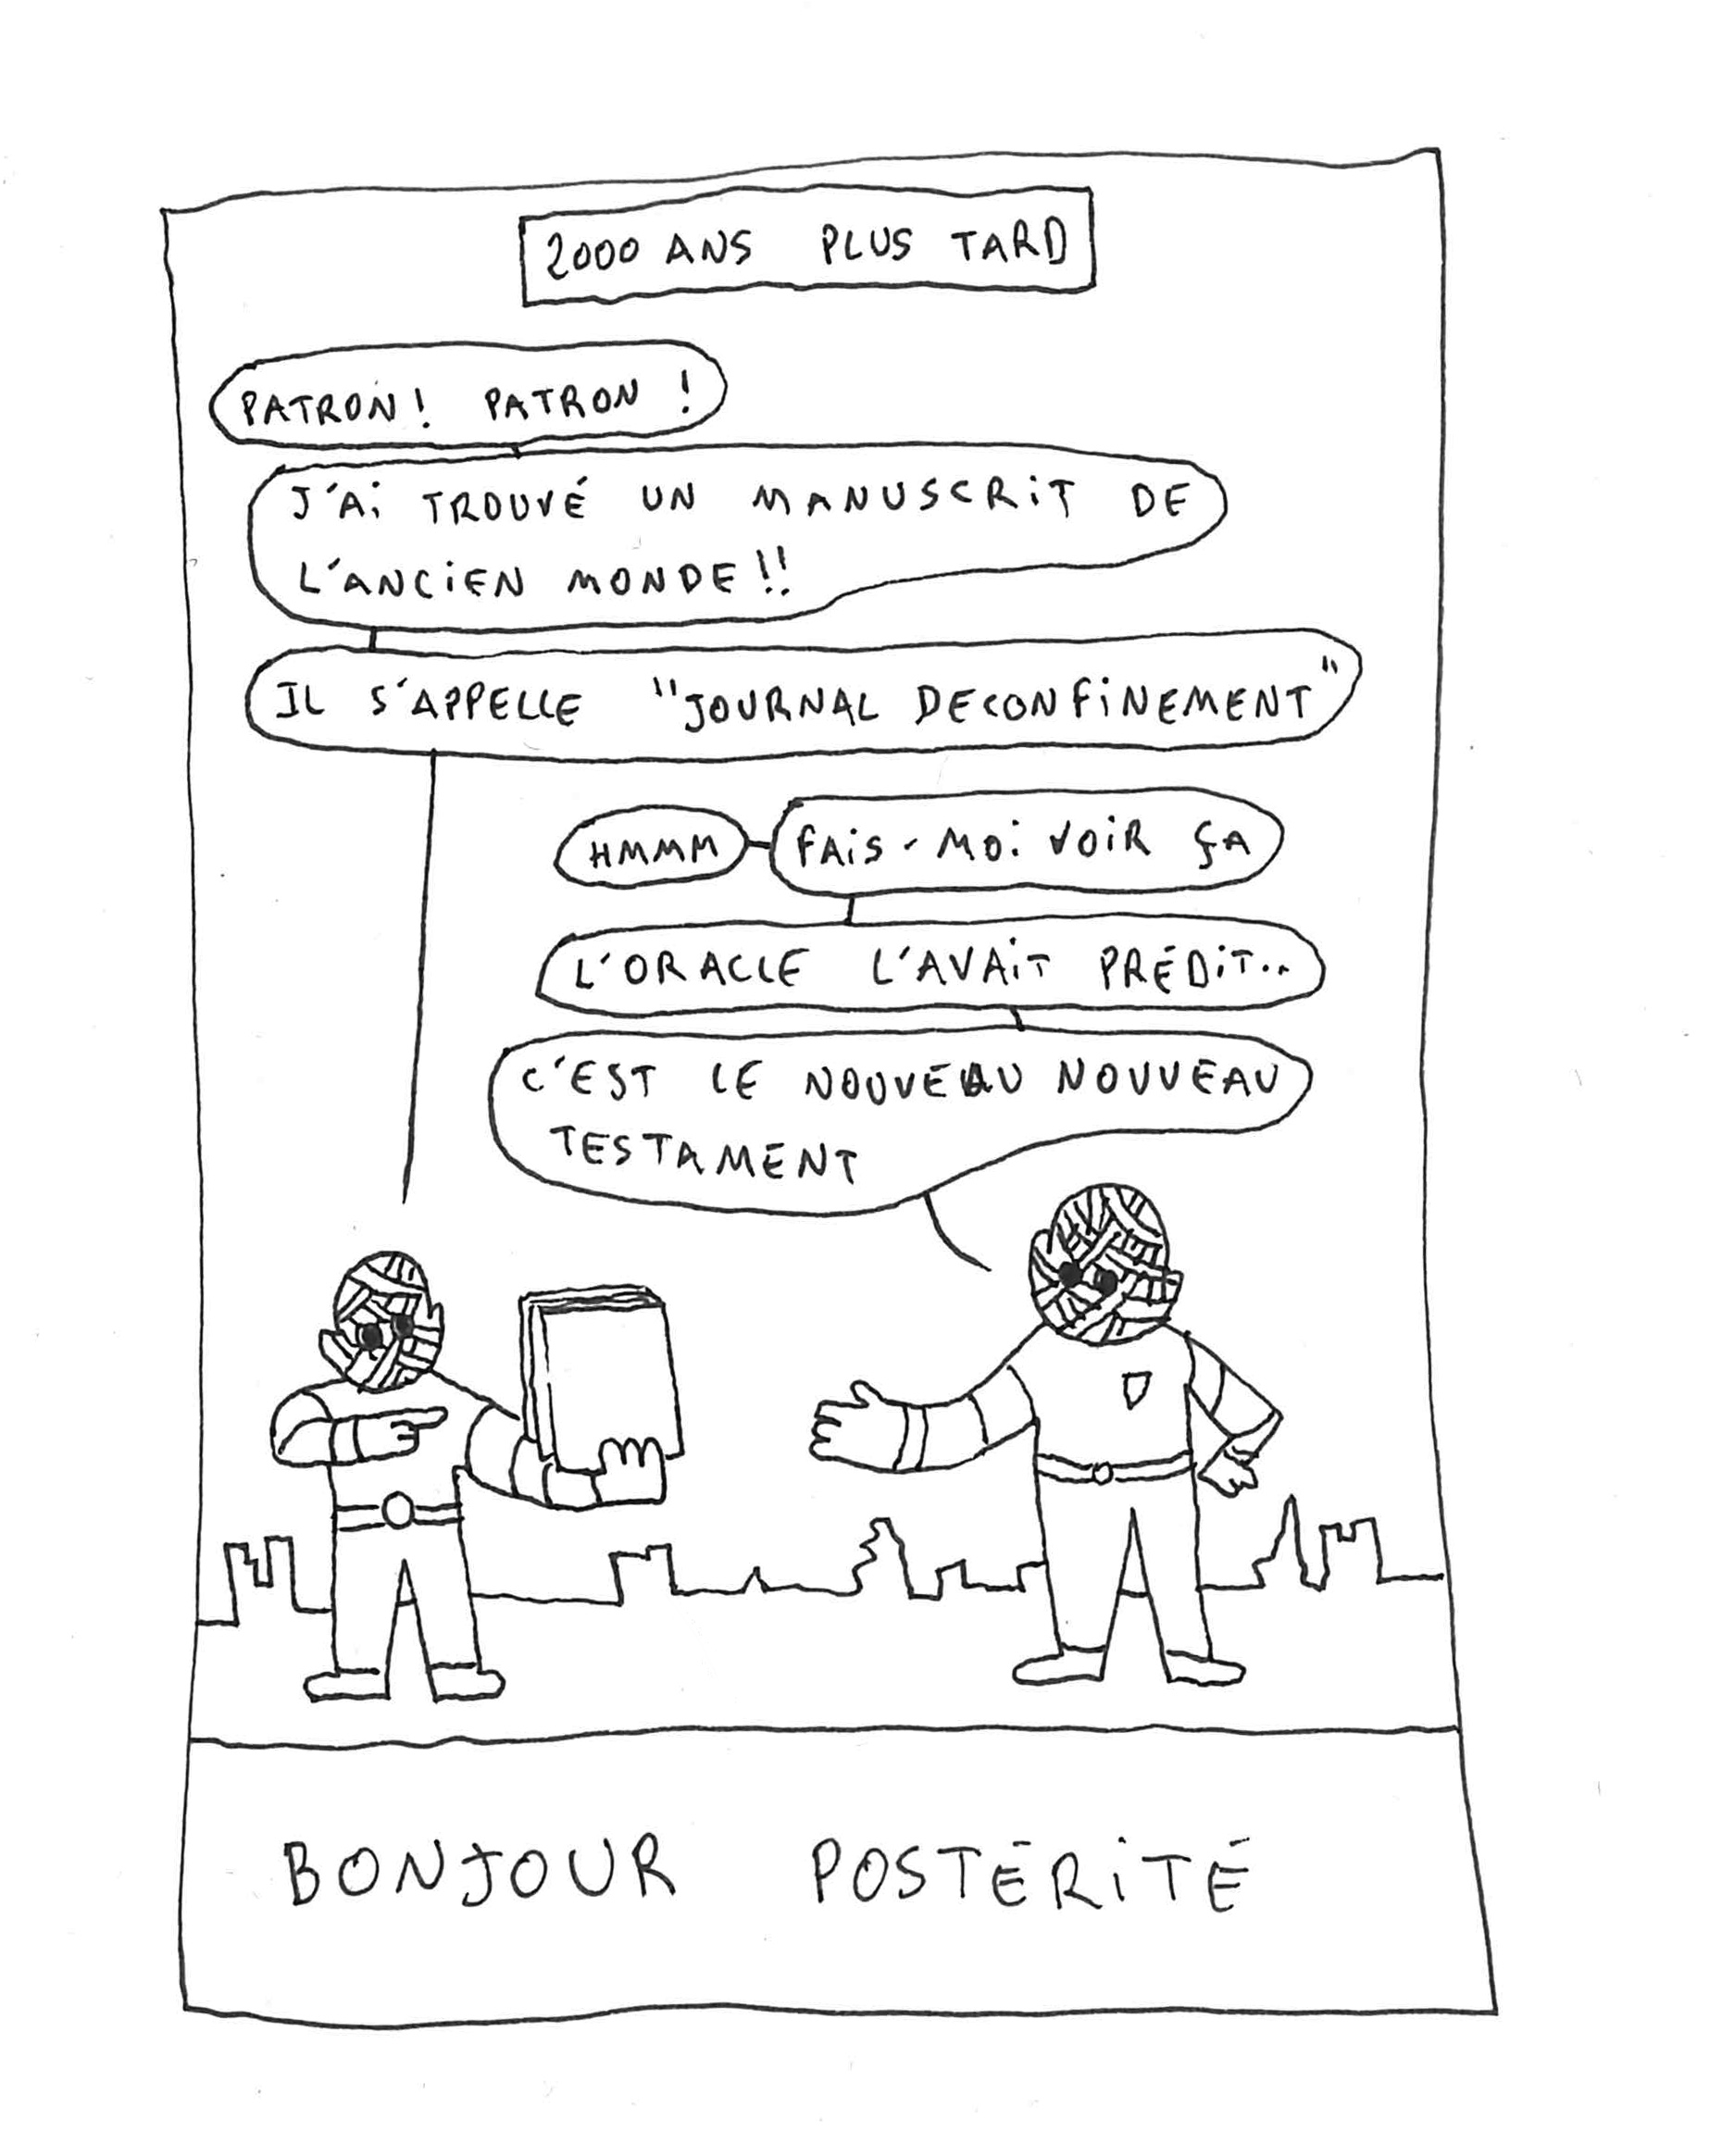 2000 ANS PLUS TARD
PATRON! PATRON !
J'Ai TROUVÉ UN MANUSCRiT DE
L'ANCiEN MONDE!!
IL S'APPELLE "JOURNAL DECONFiNEMENT"
HMMM
FAiS-MOi VOiR ÇA
L'ORACLE L'AVAiT PRÉDiT..
C'EST LE NOUVEAU NOUVEAU
TESTAMENT
BONJOUR POSTÉRiTÉ